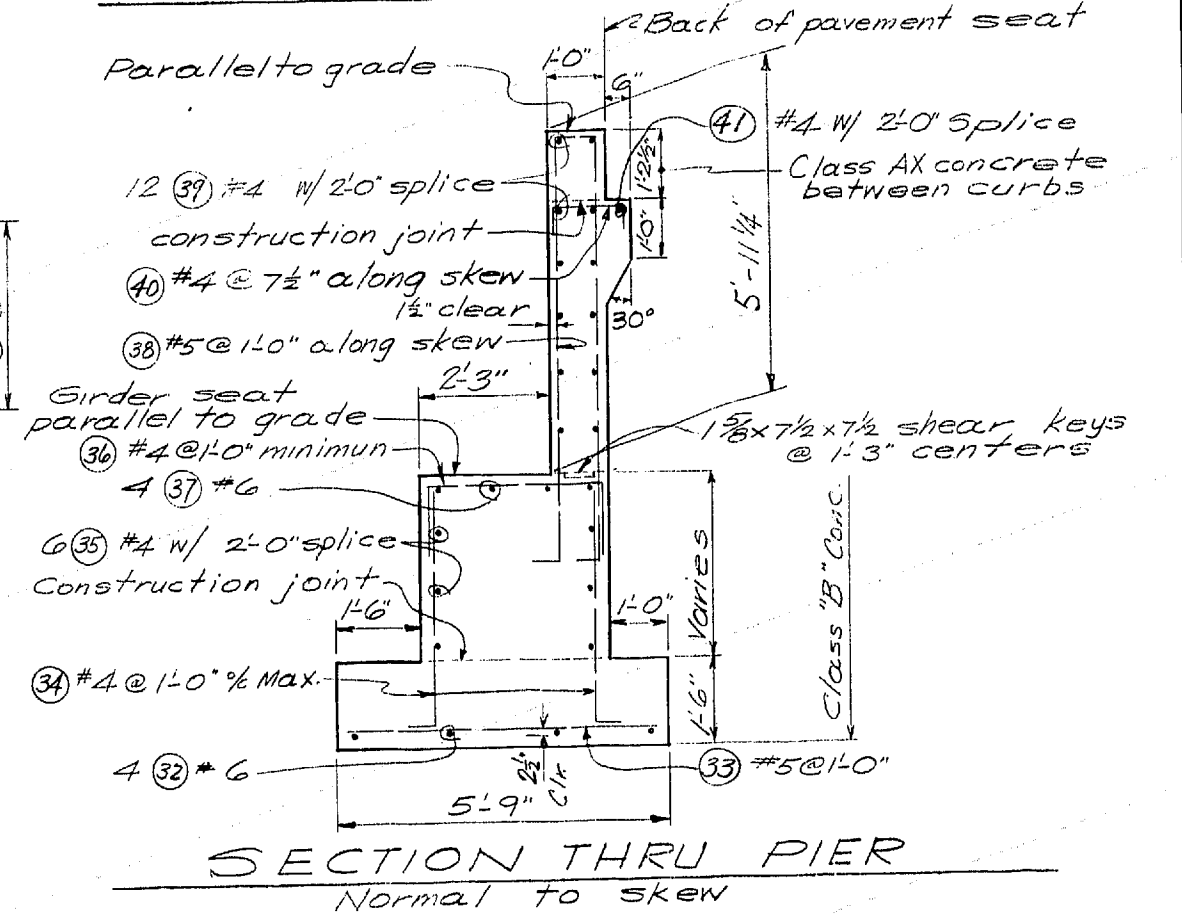 Back of pavement seat
Parallel to grade
1'-0"
6"
41 #4 W/ 2'-0" Splice
1'-2½"
Class AX concrete
between curbs
12 39 #4 W/ 2'-0" splice
construction joint
1'-0"
40 #4 @ 7½" along skew
1½" clear
30°
5'-11¼"
38 #5 @ 1'-0" along skew
2'-3"
Girder seat
parallel to grade
1⅝ x 7½ x 7½ shear keys
@ 1'-3" centers
36 #4 @ 1'-0" minimun
4 37 #6
6 35 #4 W/ 2'-0" splice
Construction joint
1'-6"
1'-0"
Varies
Class "B" Conc.
34 #4 @ 1'-0" o/c Max.
1'-6"
4 32 #6
2½"
Clr
33 #5 @ 1'-0"
5'-9"
SECTION THRU PIER
Normal to skew